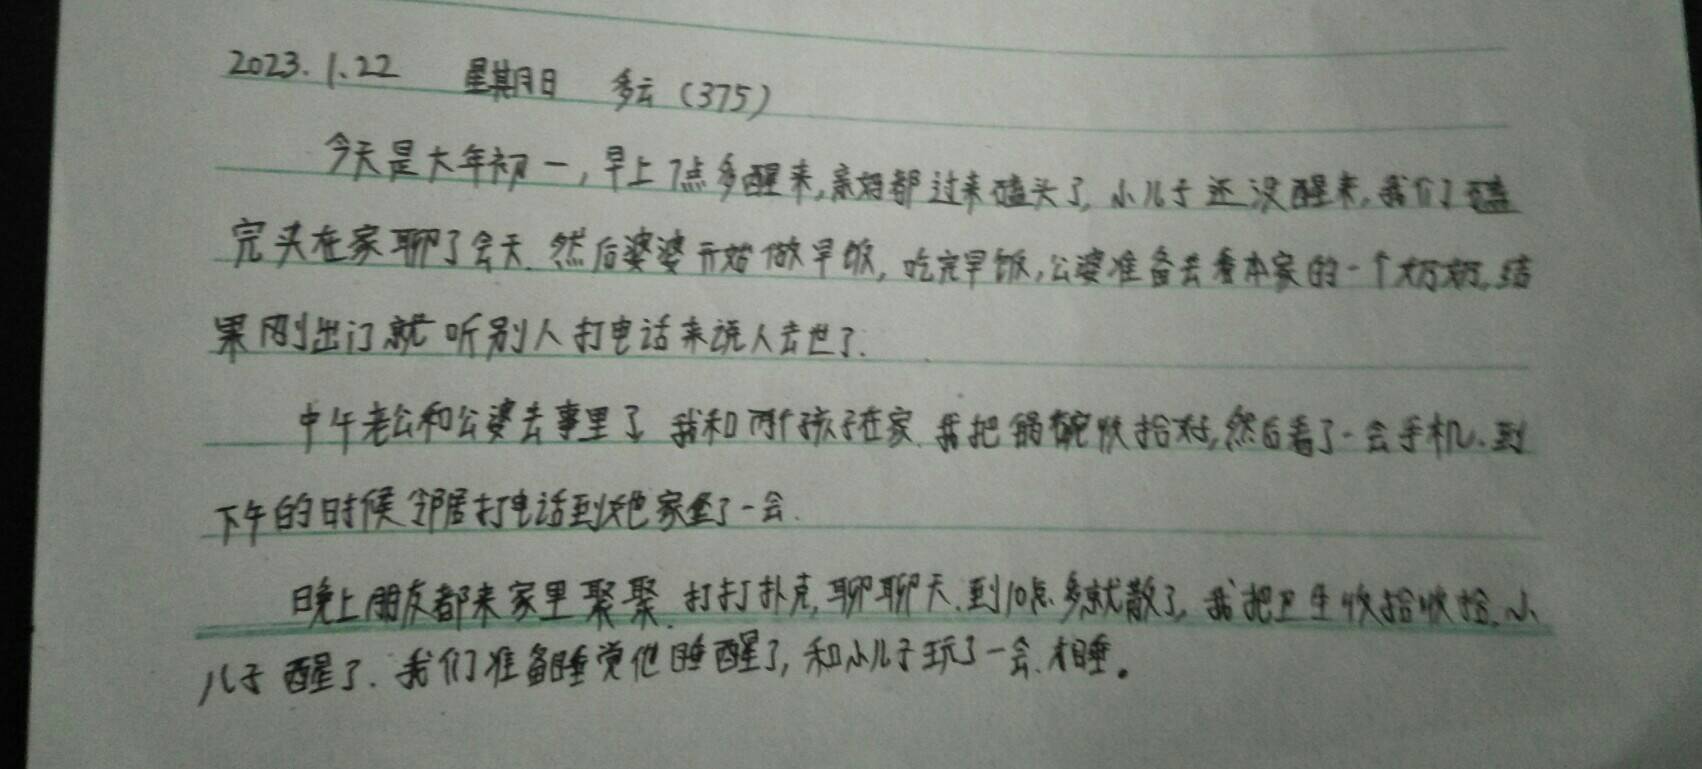 2023.1.22 星期日 多云(375)
今天是大年初一,早上7点多醒来,亲如都过来磕头了,小儿子还没醒来,我们磕
完头在家聊了会天.然后婆婆开始做早饭,吃完早饭,公婆准备去看本家的一个奶奶,结
果刚出门就听别人打电话来说人去世了.
中午老公和公婆去事里了,我和两个孩子在家.我把锅碗收拾好,然后看了一会手机.到
下午的时候邻居打电话到她家坐了一会.
晚上朋友都来家里聚聚.打打扑克,聊聊天.到10点多就散了,我把卫生收拾收拾.小
儿子醒了.我们准备睡觉他睡醒了,和小儿子玩了一会.才睡。